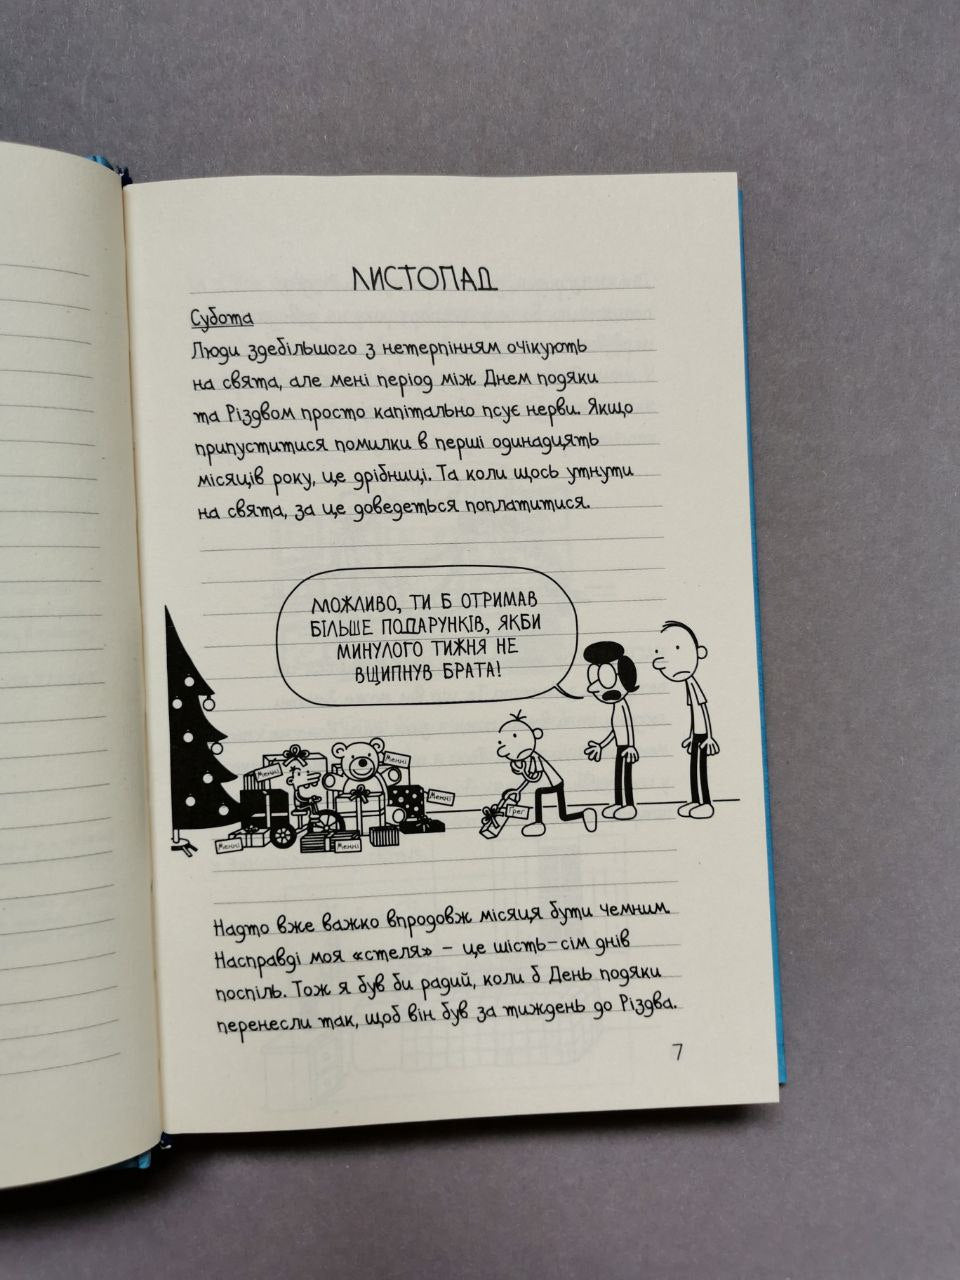 ЛИСТОПАД
Субота
Люди здебільшого з нетерпінням очікують
на свята, але мені період між Днем подяки
та Різдвом просто капітально псує нерви. Якщо
припуститися помилки в перші одинадцять
місяців року, це дрібниці. Та коли щось утнути
на свята, за це доведеться поплатитися.
МОЖЛИВО, ТИ Б ОТРИМАВ
БІЛЬШЕ ПОДАРУНКІВ, ЯКБИ
МИНУЛОГО ТИЖНЯ НЕ
ВЩИПНУВ БРАТА!
Менні
Менні
Менні
Грег
Менні
Менні
Надто вже важко впродовж місяця бути чемним.
Насправді моя «стеля» – це шість-сім днів
поспіль. Тож я був би радий, коли б День подяки
перенесли так, щоб він був за тиждень до Різдва.
7